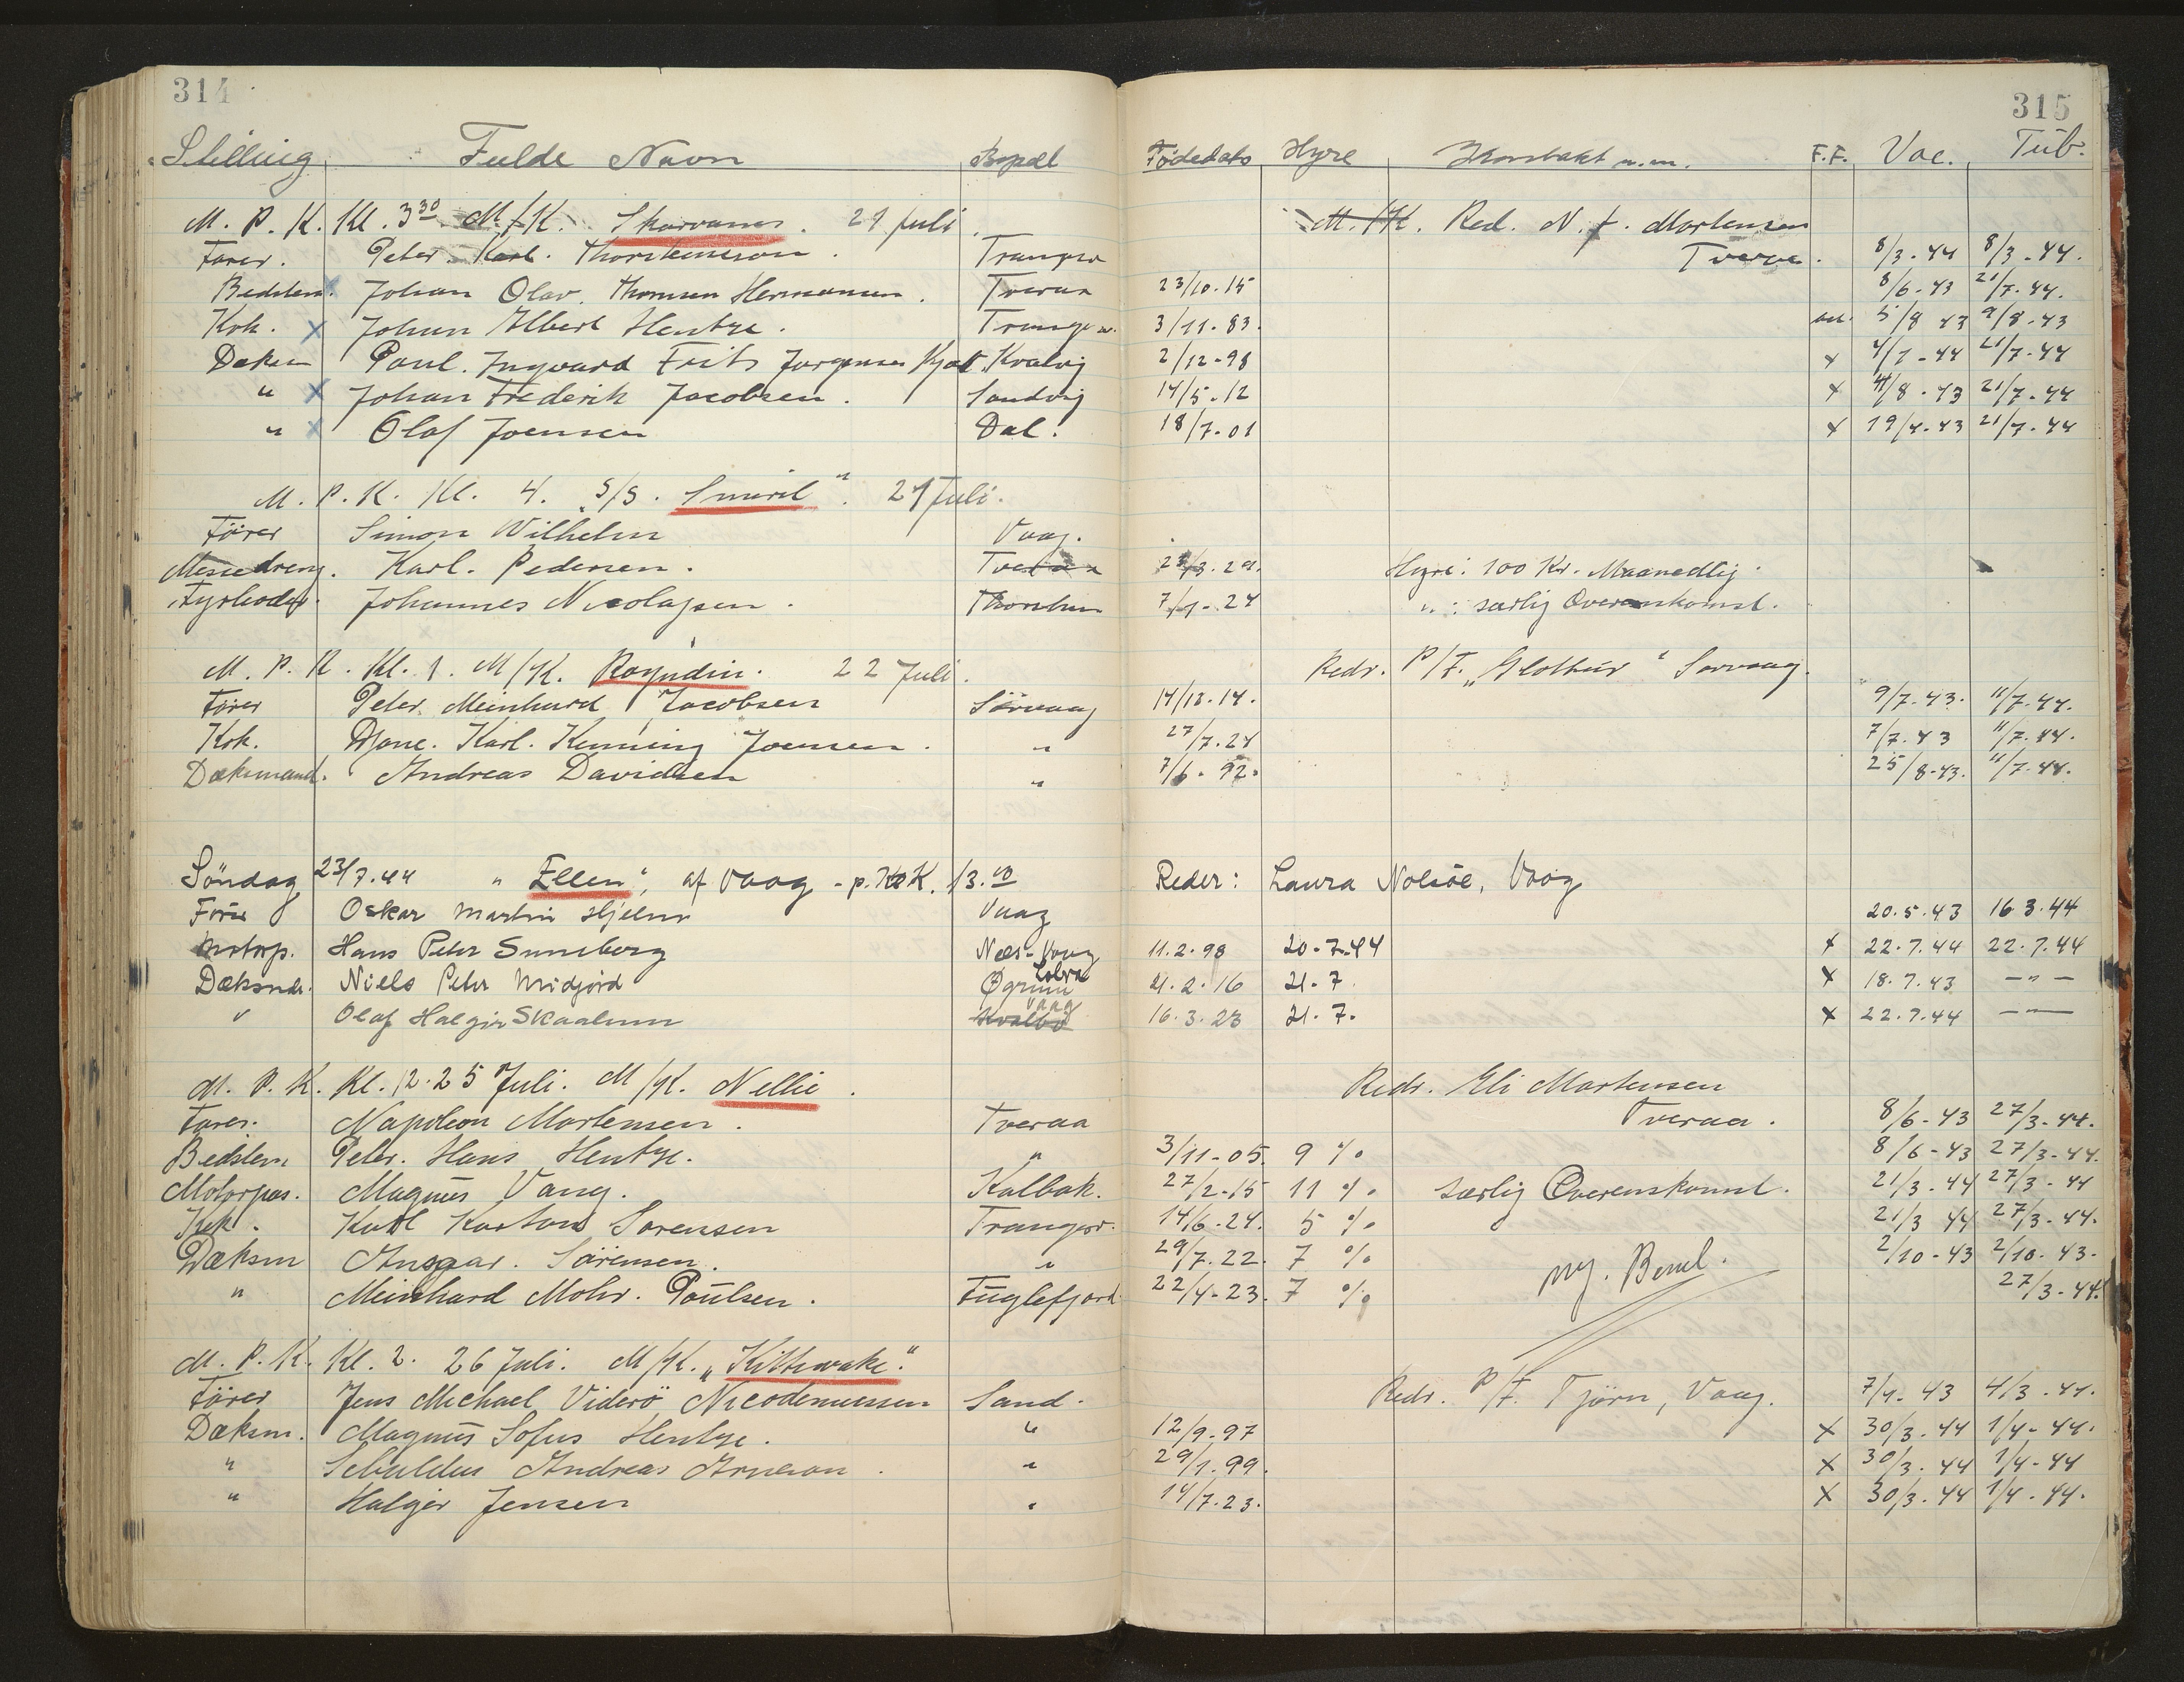 314 315
Stilling Fulde Navn Bopæl Födedato Hyre Kontrakt m.m. F.F. Vac. Tub.
M. P. K. Kl. 3 30 M/K. Skarvanes. 21 juli. M./K. Red. N. J. Mortensen
Förer. Peter Karl. Thorsteinsson. Trangsv Tveraa. 8/3-44 8/3-44.
Bedstem. x Johan Olav. Thomsen Hermansen. Tveraa 23/10.15 8/6-43 21/7-44.
Kok. x Johan Albert Hentze. Trangsv. 3/11.83. 5/8 43 9/8-43
Dæksm Poul. Ingvard Frits Jorgensen Kjølb. Kvalvig 2/12-98 x 4/7-44 21/7-44
" x Johan Frederik Jacobsen. Sandvig 14/5.12 x 4/8-43 21/7-44
" x Olaf Joensen Dal. 18/7-01 x 19/4-43 21/7-44
M. P. K. Kl. 4. "S/S. Smiril". 21 Juli.
Förer Simon Wilhelm Vaag.
Messedreng. Karl. Pedersen. Tveraa 3.29. Hyre: 100 Kr. Maanedlig.
Fyrböder. Johannes Nicolajsen. Thorshavn 7/1-24 ": særlig Overenskomst.
M. P. K. Kl. 1. M/K. Royndin. 22 Juli. Redr. P/F. "Glottur" Sorvaag.
Förer Peter Meinhard Jacobsen Sörvaag 14/12.14. 9/7-43. 11/7-44.
Kok. Karl. Joensen. " 27/7.24 7/7.43 11/7.44.
Dæksmand. Andreas Davidsen " 7/6-92. 25/8-43. 11/7-44.
Söndag 23/7.44 "Ellen", af Vaag - p. K. 13.10 Reder: Laura Nolsöe, Vaag
Förer Oskar Martin Hjelm Vaag 20.5.43 16 3.44
Motorp. Hans Peter Sumberg Næs-Vaag 11.2.98 20-7-44 x 22.7.44 22.7.44
Dæksmd. Niels Peter Midjord Øgrum Lobra 21.2.16 21.7. x 18.7.43 — " —
" Olaf Halgir Skaalum Kvalbø Vaag 16.3.23 21.7. x 22.7.44 — " —
M. P. K. Kl. 12. 25 Juli. M/K. Nellie. Redr. Eli Mortensen
Förer. Napoleon Mortensen. Tveraa Tveraa. 8/6-43 27/3-44.
Bedstem Peter. Hans Hentze. " 3/11-05. 9 % 8/6-43 27/3-44.
Motorpas. Magnus Vang. Kalbak. 27/2-15 11 % særlig Overenskomst. 21/3-44 27/3-44
Kok. Karl Sorensen Trangsv. 14/6-24. 5 % 21/3 44 27/3-44.
Dæksm Ansgar. Sörensen. " 29/7.22. 7 % 2/10-43 2/10-43-
" Meinhard Mohr. Poulsen. Fuglefjord 22/4-23. 7 % ny. Beml. 27/3-44.
M. P. K. Kl. 2. 26 Juli. M/K. "Kittiwake".
Förer Jens Michael Viderö Nicodemussen Sand. Redr. P/F. Tjörn, Vaag. 7/1-43 4/3-44.
Dæksm. Magnus Sofus Hentze. " 12/9.97 x 30/3.44 1/4-44.
" Sebuldus Andreas Arneson. " 29/1.99. x 30/3.44 1/4-44
" Halgir Jensen " 14/7.23. x 30/3.44 1/4-44.